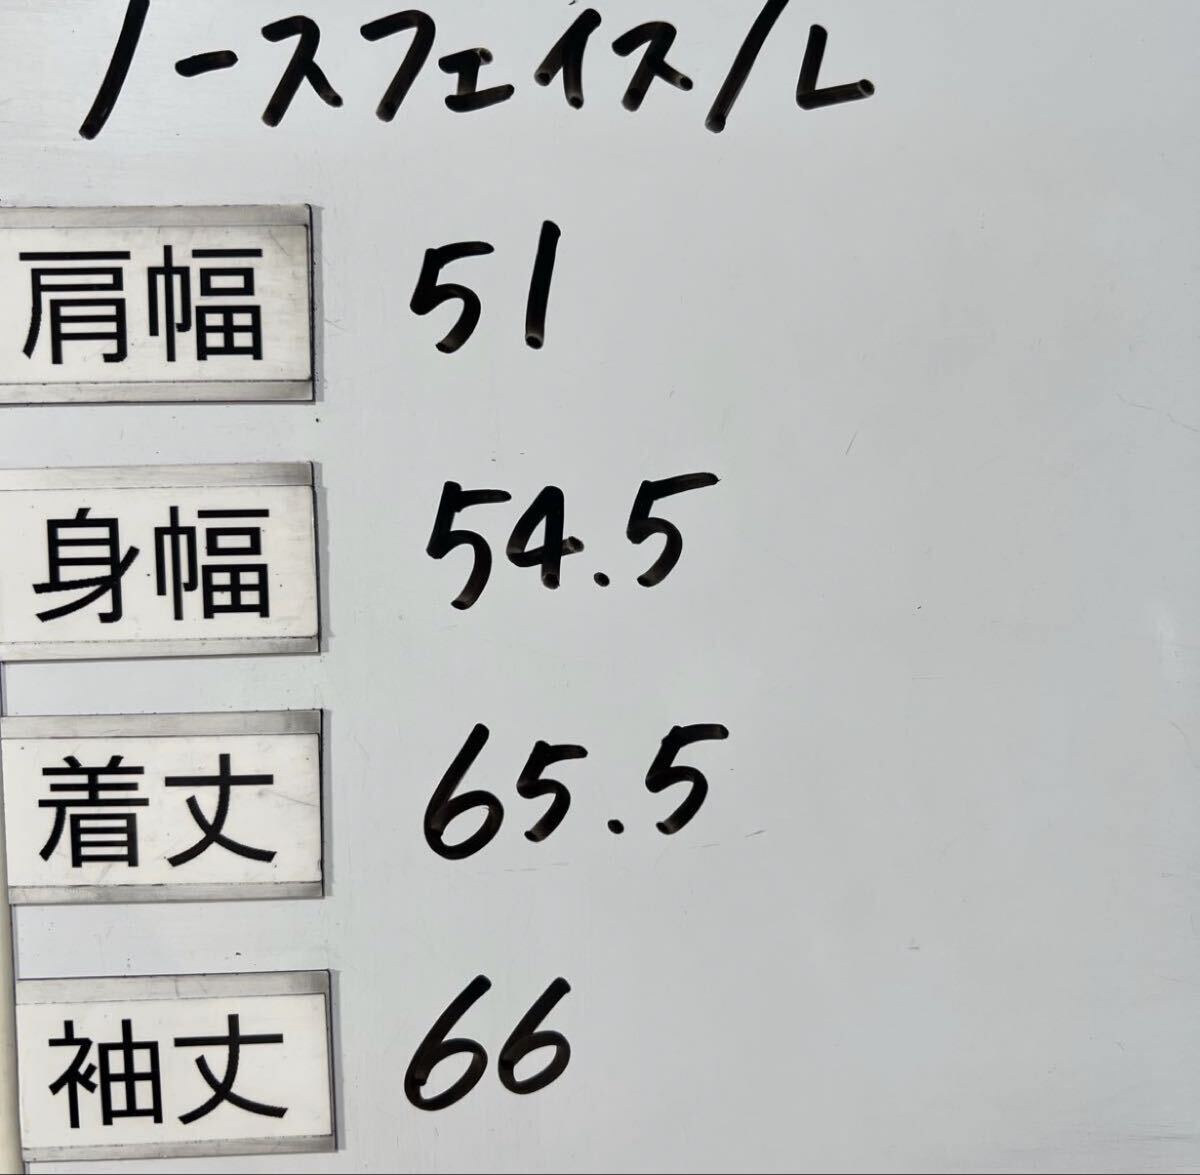 ノースフェイス/L
肩幅 51
身幅 54.5
着丈 65.5
袖丈 66